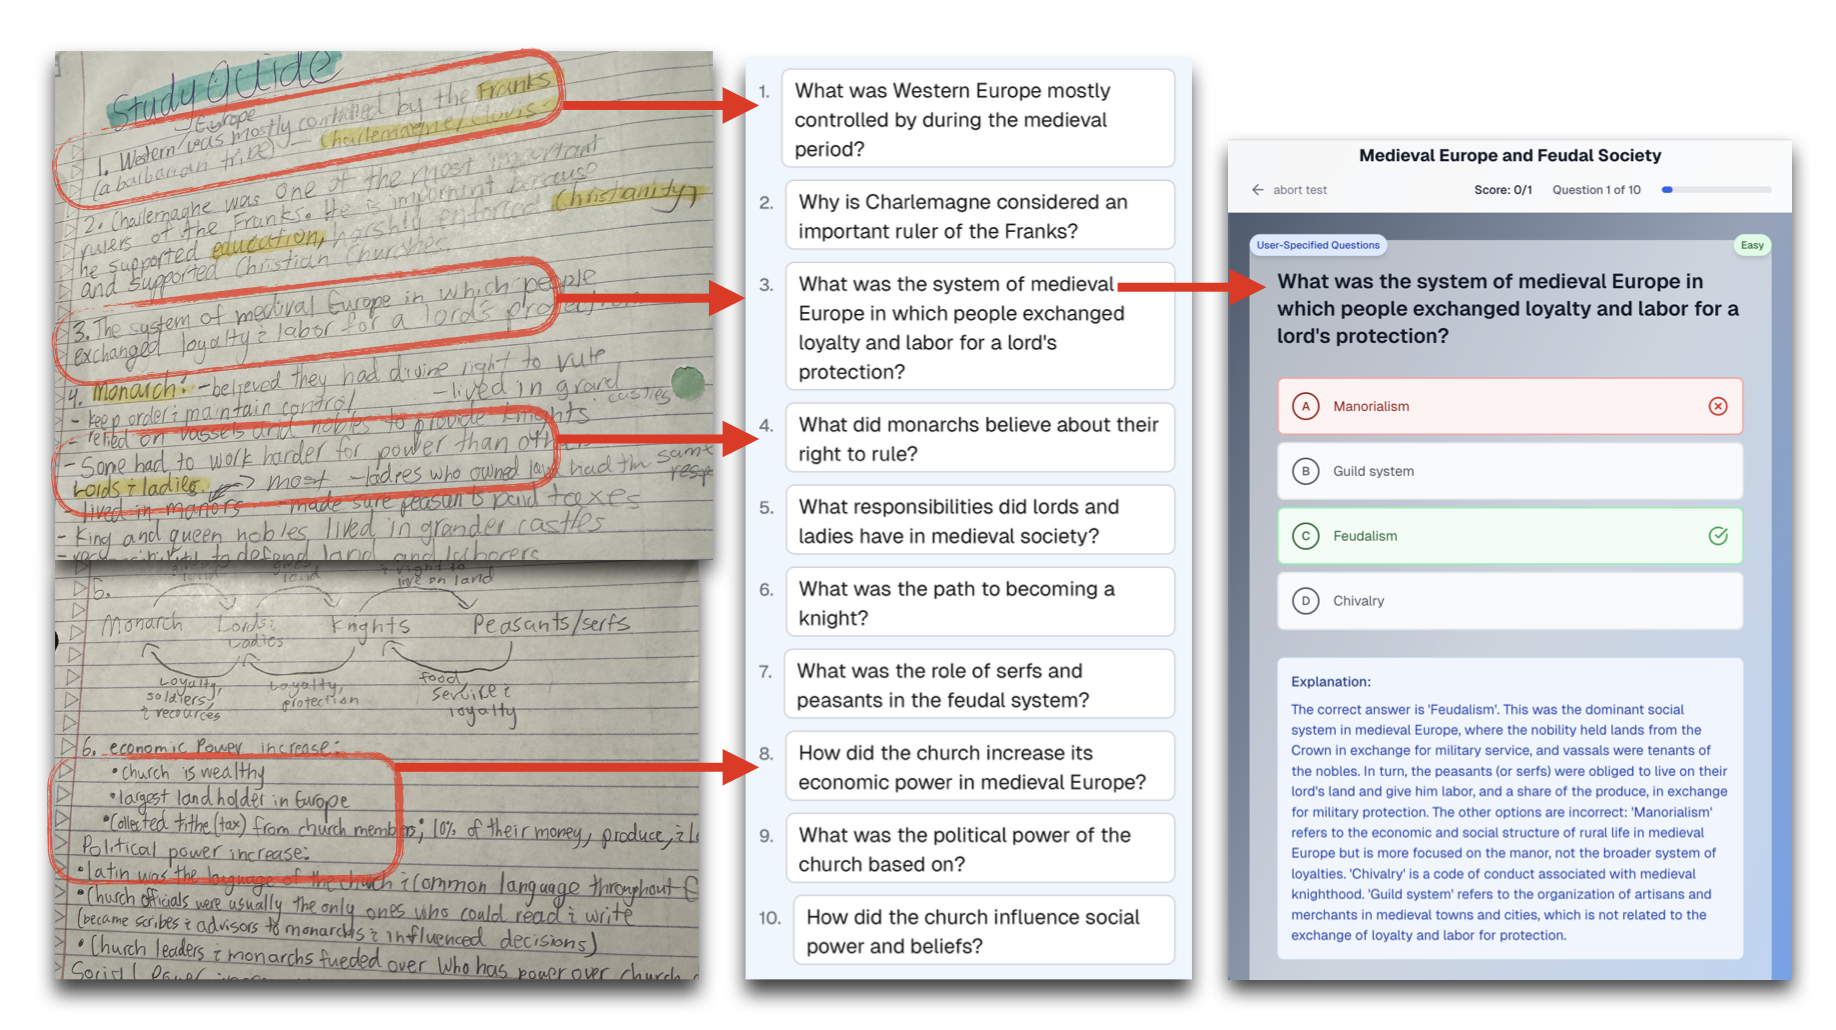 Study Guide
Europe
1. Western was mostly controlled by the Franks
(a barbarian tribe) — Charlemagne/Clovis
2. Charlemagne was one of the most important
rulers of the Franks. He is important because
he supported education, harshly enforced Christianity,
and supported Christian Churches.
3. The system of medival Europe in which people
exchanged loyalty & labor for a lord's protection
4. Monarch: - believed they had divine right to rule
- keep order & maintain control - lived in grand castles
- relied on vassels and nobles to provide knights
- Some had to work harder for power than others
Lords & ladies. → most - ladies who owned land had the same
- lived in manors - made sure peasants paid taxes
- King and queen nobles lived in grander castles
to defend land and laborers
live on land
6.
Monarch Lords & Ladies Knights Peasants/serfs
Loyalty, soldiers, & recources
Loyalty, protection
food, service & loyalty
6. economic Power increase:
• church is wealthy
• largest land holder in Europe
• Collected tithe (tax) from church members; 10% of their money, produce, &
Political power increase:
• Latin was the language of the church & common language throughout
• Church officials were usually the only ones who could read & write
(became scribes & advisors to monarchs & influenced decisions)
• Church leaders & monarchs fueded over who has power over church
1. What was Western Europe mostly
controlled by during the medieval
period?
2. Why is Charlemagne considered an
important ruler of the Franks?
3. What was the system of medieval
Europe in which people exchanged
loyalty and labor for a lord's
protection?
4. What did monarchs believe about their
right to rule?
5. What responsibilities did lords and
ladies have in medieval society?
6. What was the path to becoming a
knight?
7. What was the role of serfs and
peasants in the feudal system?
8. How did the church increase its
economic power in medieval Europe?
9. What was the political power of the
church based on?
10. How did the church influence social
power and beliefs?
Medieval Europe and Feudal Society
← abort test Score: 0/1 Question 1 of 10
User-Specified Questions Easy
What was the system of medieval Europe in
which people exchanged loyalty and labor for a
lord's protection?
A Manorialism
B Guild system
C Feudalism
D Chivalry
Explanation:
The correct answer is 'Feudalism'. This was the dominant social
system in medieval Europe, where the nobility held lands from the
Crown in exchange for military service, and vassals were tenants of
the nobles. In turn, the peasants (or serfs) were obliged to live on their
lord's land and give him labor, and a share of the produce, in exchange
for military protection. The other options are incorrect: 'Manorialism'
refers to the economic and social structure of rural life in medieval
Europe but is more focused on the manor, not the broader system of
loyalties. 'Chivalry' is a code of conduct associated with medieval
knighthood. 'Guild system' refers to the organization of artisans and
merchants in medieval towns and cities, which is not related to the
exchange of loyalty and labor for protection.